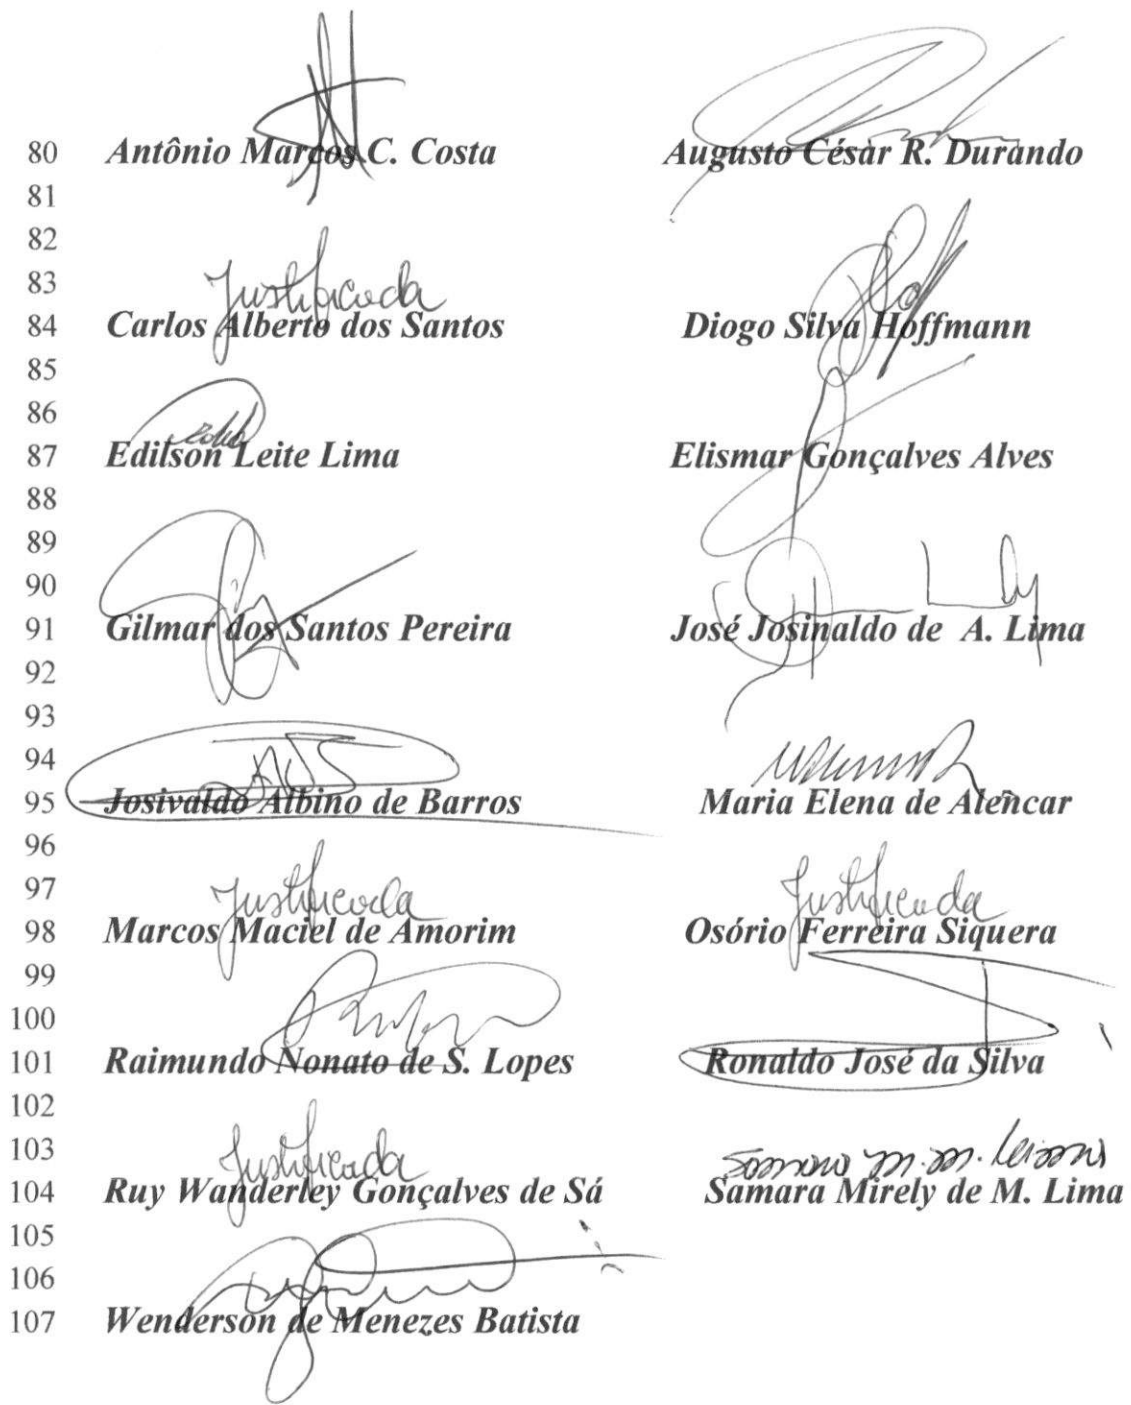 80 Antônio Marcos C. Costa Augusto César R. Durando
81
82
83 Justificada
84 Carlos Alberto dos Santos Diogo Silva Hoffmann
85
86
87 Edilson Leite Lima Elismar Gonçalves Alves
88
89
90
91 Gilmar dos Santos Pereira José Josinaldo de A. Lima
92
93
94
95 Josivaldo Albino de Barros Maria Elena de Alencar
96
97 Justificada Justificada
98 Marcos Maciel de Amorim Osório Ferreira Siquera
99
100
101 Raimundo Nonato de S. Lopes Ronaldo José da Silva
102
103 Justificada Samara M. M. Lima
104 Ruy Wanderley Gonçalves de Sá Samara Mirely de M. Lima
105
106
107 Wenderson de Menezes Batista